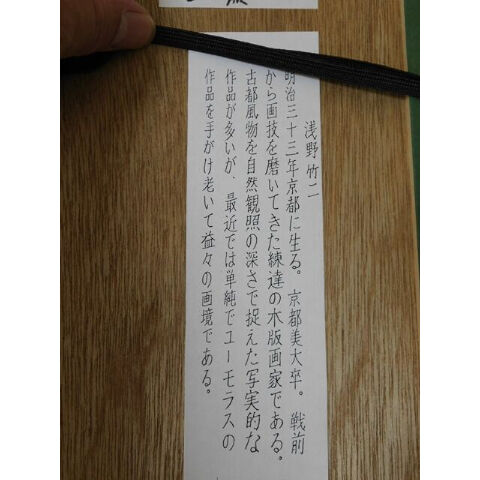 浅野竹二
明治三十三年京都に生る。京都美大卒。戦前
から画技を磨いてきた練達の木版画家である。
古都風物を自然観照の深さで捉えた写実的な
作品が多いが、最近では単純でユーモラスの
作品を手がけ老いて益々の画境である。